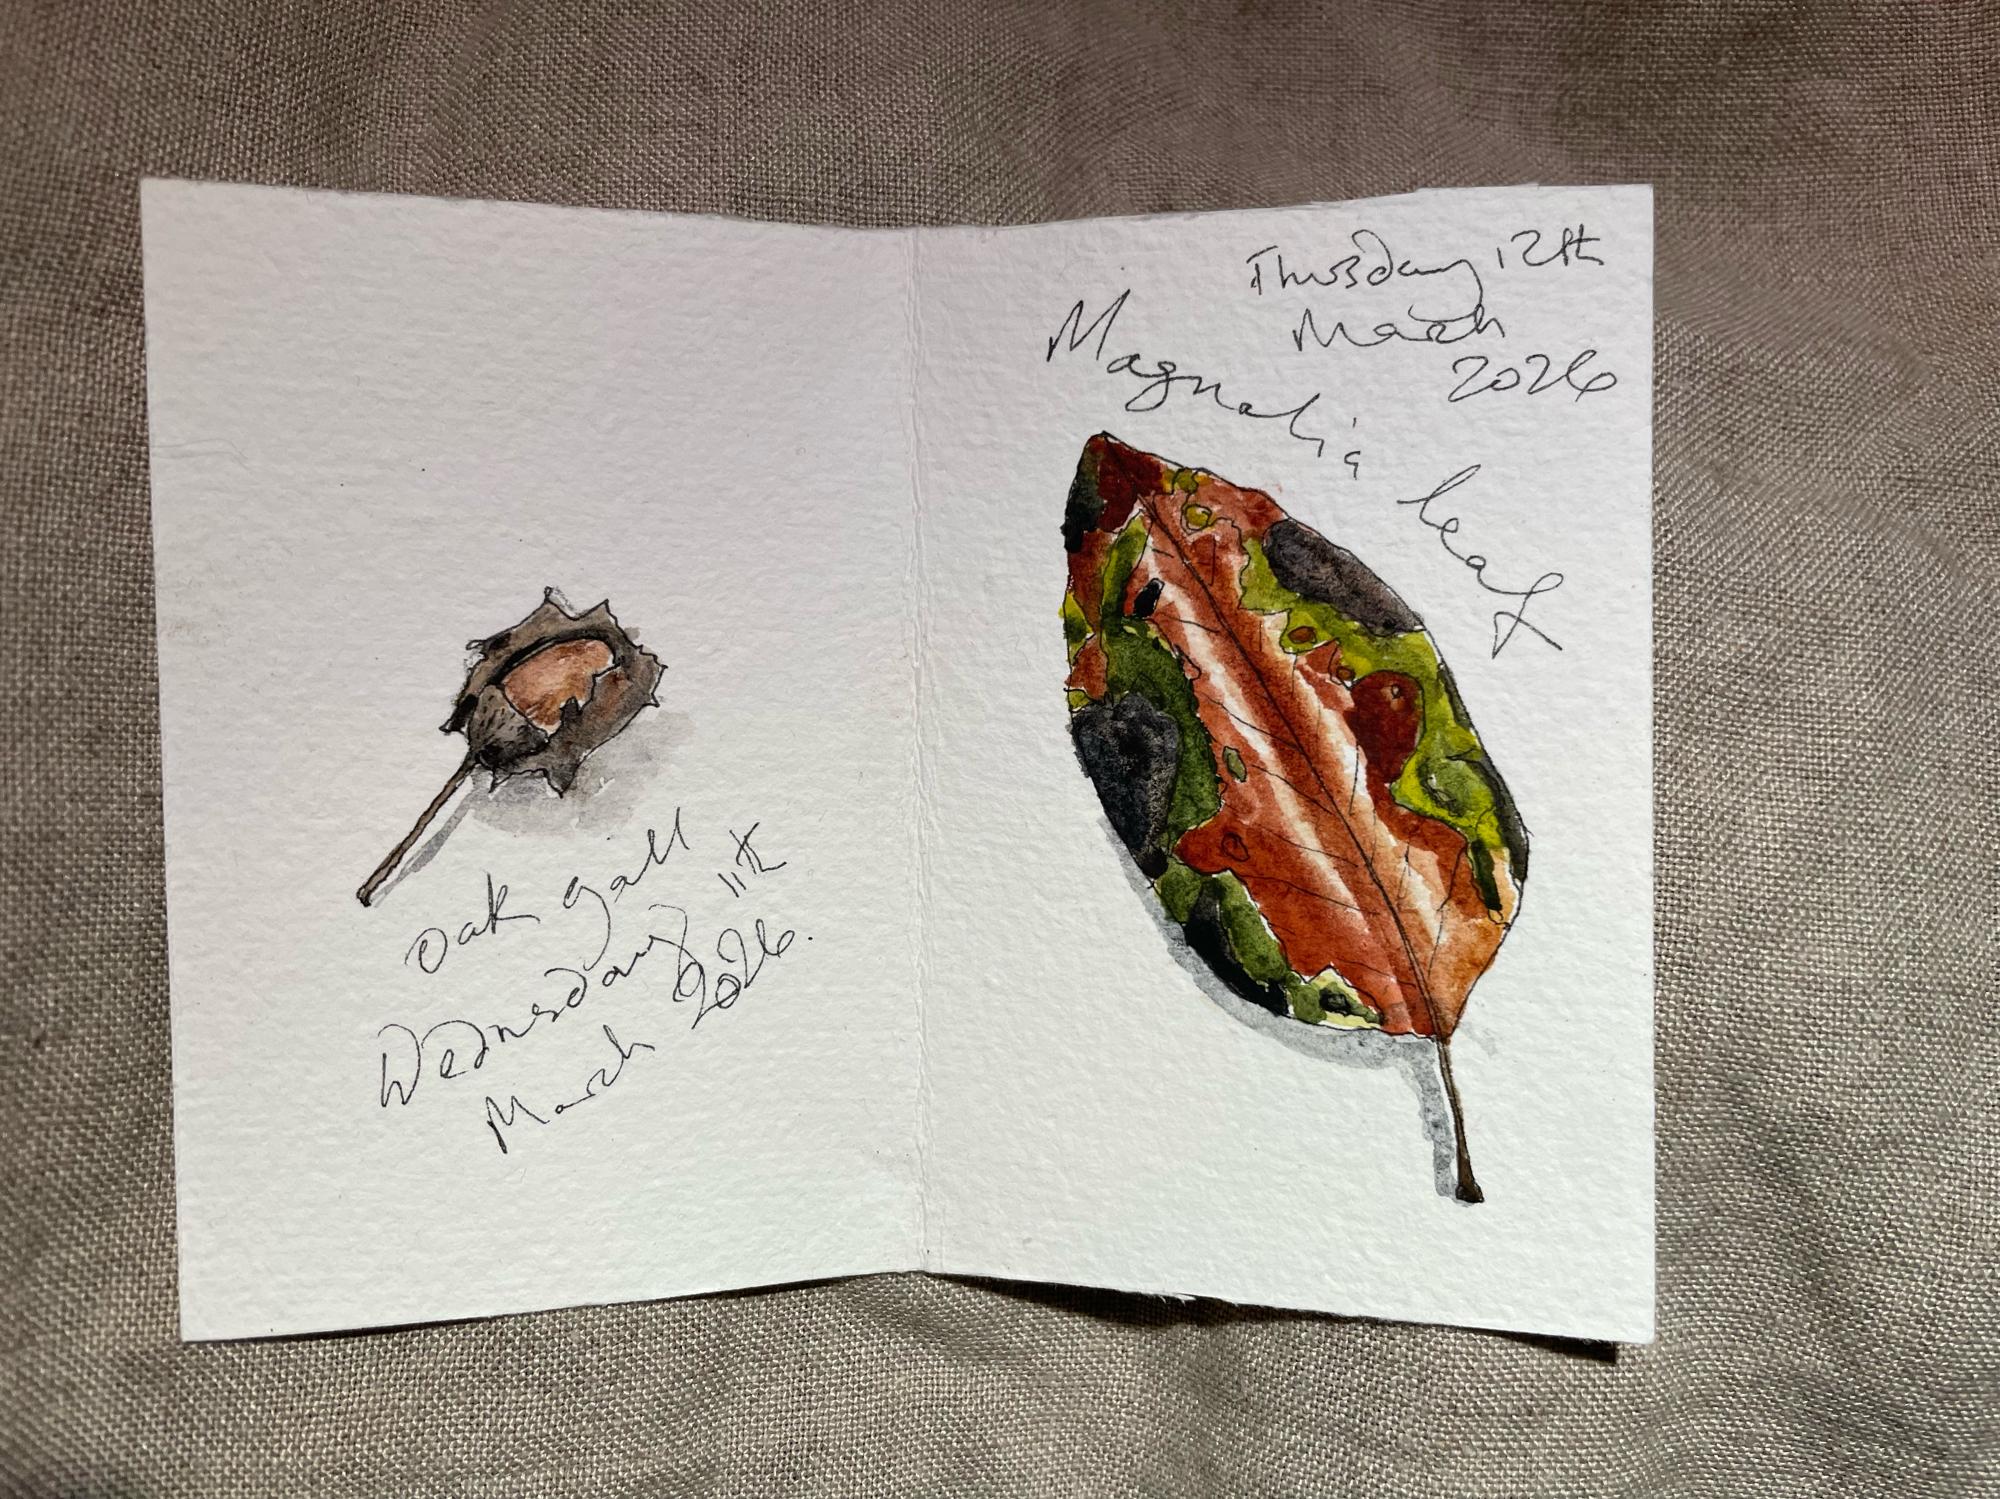 Oak gall
Wednesday 11th
March 2026.
Thursday 12th
March
2026
Magnolia leaf